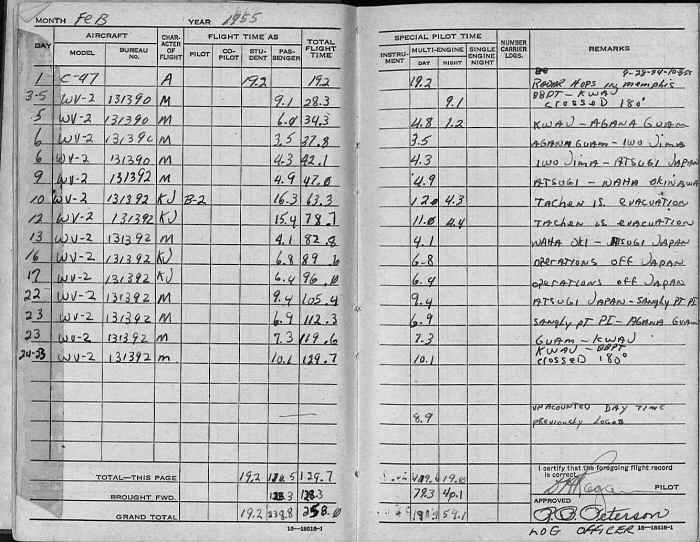 MONTH FEB YEAR 1955
DAY AIRCRAFT CHAR- ACTER OF FLIGHT FLIGHT TIME AS TOTAL FLIGHT TIME
MODEL BUREAU NO. PILOT CO- PILOT STU- DENT PAS- SENGER
1 C-97 A 19.2 19.2
3-5 WV-2 131390 M 9.1 28.3
5 WV-2 131390 M 6.0 34.3
6 WV-2 131390 M 3.5 37.8
6 WV-2 131390 M 4.3 42.1
9 WV-2 131392 M 4.9 47.0
10 WV-2 131392 KJ B-2 16.3 63.3
12 WV-2 131392 KJ 15.4 78.7
13 WV-2 131392 M 4.1 82.8
16 WV-2 131392 KJ 6.8 89.6
17 WV-2 131392 KJ 6.4 96.0
22 WV-2 131392 M 9.4 105.4
23 WV-2 131392 M 6.9 112.3
23 WV-2 131392 M 7.3 119.6
WV-2 131392 M 10.1 129.7
TOTAL—THIS PAGE 19.2 129.7
BROUGHT FWD.
GRAND TOTAL 19.2
16—19616-1
SPECIAL PILOT TIME NUMBER CARRIER LDGS. REMARKS
INSTRU- MENT MULTI-ENGINE SINGLE ENGINE NIGHT
DAY NIGHT
19.2 RADAR HOPS IN MEMPHIS
BBPT - KWAJ
9.1 CROSSED 180°
4.8 1.2 KWAJ - AGANA GUAM
3.5 AGANA GUAM - IWO JIMA
4.3 IWO JIMA - ATSUGI JAPAN
4.9 ATSUGI - NAHA OKINAWA
12.0 4.3 TACHEN IS. EVACUATION
11.0 4.4 TACHEN IS. EVACUATION
4.1 NAHA OKI - ATSUGI JAPAN
6.8 OPERATIONS OFF JAPAN
6.4 OPERATIONS OFF JAPAN
9.4 ATSUGI JAPAN - SANGLY PT PI
6.9 SANGLY PT PI - AGANA GUAM
7.3 GUAM - KWAJ
KWAJ - BBPT
10.1 CROSSED 180°
DAY TIME
8.9 PREVIOUSLY LOGED
I certify that the foregoing flight record
is correct.
PILOT
APPROVED
Peterson
LOG OFFICER 16—19616-1